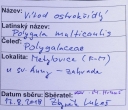 Název: Vítod ostrokřídlý
Latinský název:
Polygala multicaulis
Čeleď:
Polygalaceae
Lokalita: Metylovice (F-M)
u sv. Anny - Zahrada
Datum sběru: Sběratel:
Zbyněk Lukeš